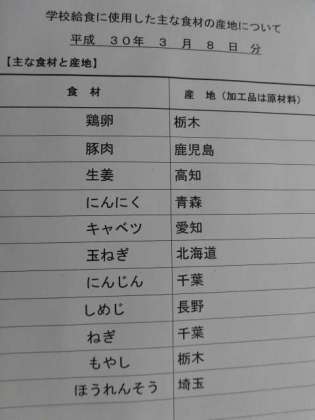 学校給食に使用した主な食材の産地について
平成 30年 3 月 8 日 分
【主な食材と産地】
食 材 産 地（加工品は原材料）
鶏卵 栃木
豚肉 鹿児島
生姜 高知
にんにく 青森
キャベツ 愛知
玉ねぎ 北海道
にんじん 千葉
しめじ 長野
ねぎ 千葉
もやし 栃木
ほうれんそう 埼玉